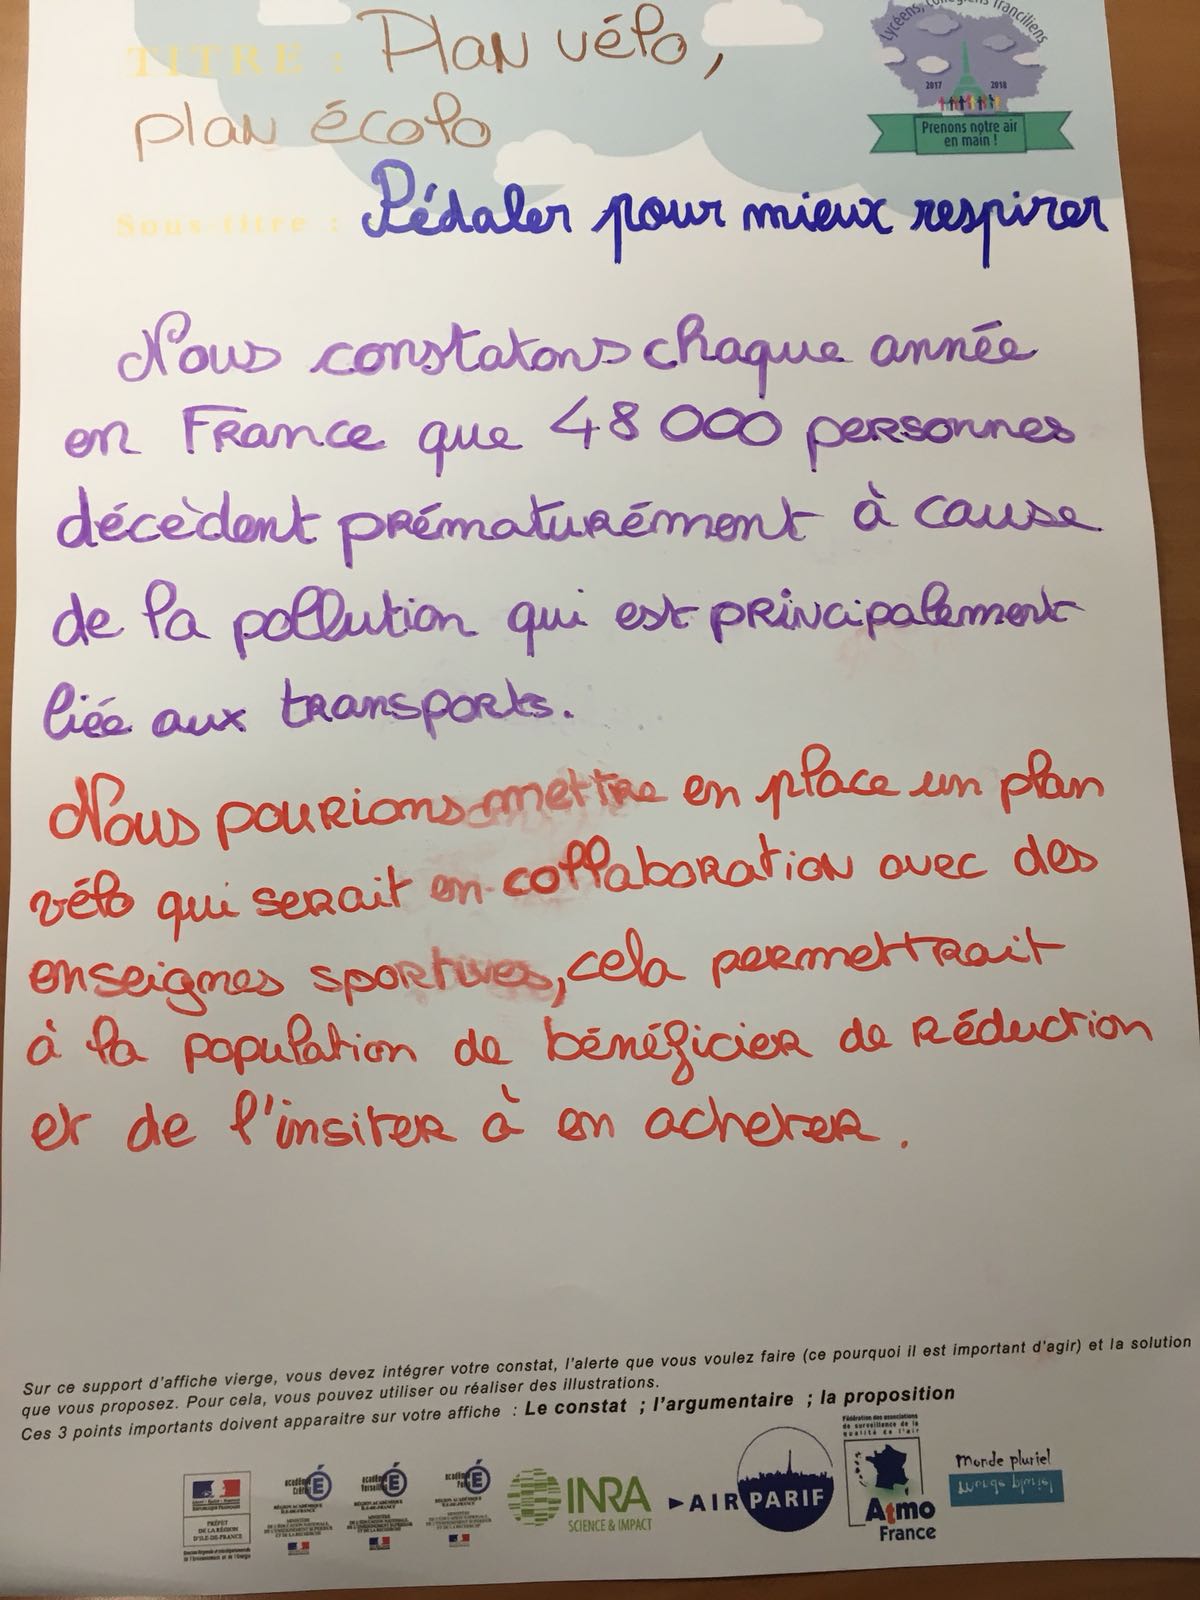 Lycéens, collégiens franciliens
2017 2018
Prenons notre air
en main !
TITRE : Plan vélo,
plan écolo
Sous-titre : Pédaler pour mieux respirer
Nous constatons chaque année
en France que 48 000 personnes
décèdent prématurément à cause
de la pollution qui est principalement
liée aux transports.
Nous pourions mettre en place un plan
vélo qui serait en collaboration avec des
enseignes sportives, cela permettrait
à la population de bénéficier de réduction
et de l'insiter à en acheter.
Sur ce support d'affiche vierge, vous devez intégrer votre constat, l'alerte que vous voulez faire (ce pourquoi il est important d'agir) et la solution
que vous proposez. Pour cela, vous pouvez utiliser ou réaliser des illustrations.
Ces 3 points importants doivent apparaitre sur votre affiche : Le constat ; l'argumentaire ; la proposition
PRÉFET
DE LA RÉGION
D'ILE-DE-FRANCE
académie
Créteil
RÉGION ACADÉMIQUE
ÎLE-DE-FRANCE
académie
Versailles
RÉGION ACADÉMIQUE
ÎLE-DE-FRANCE
académie
Paris
RÉGION ACADÉMIQUE
ÎLE-DE-FRANCE
INRA
SCIENCE & IMPACT
AIRPARIF
Fédération des associations
de surveillance de la
qualité de l'air
Atmo
France
Monde pluriel
Monde pluriel